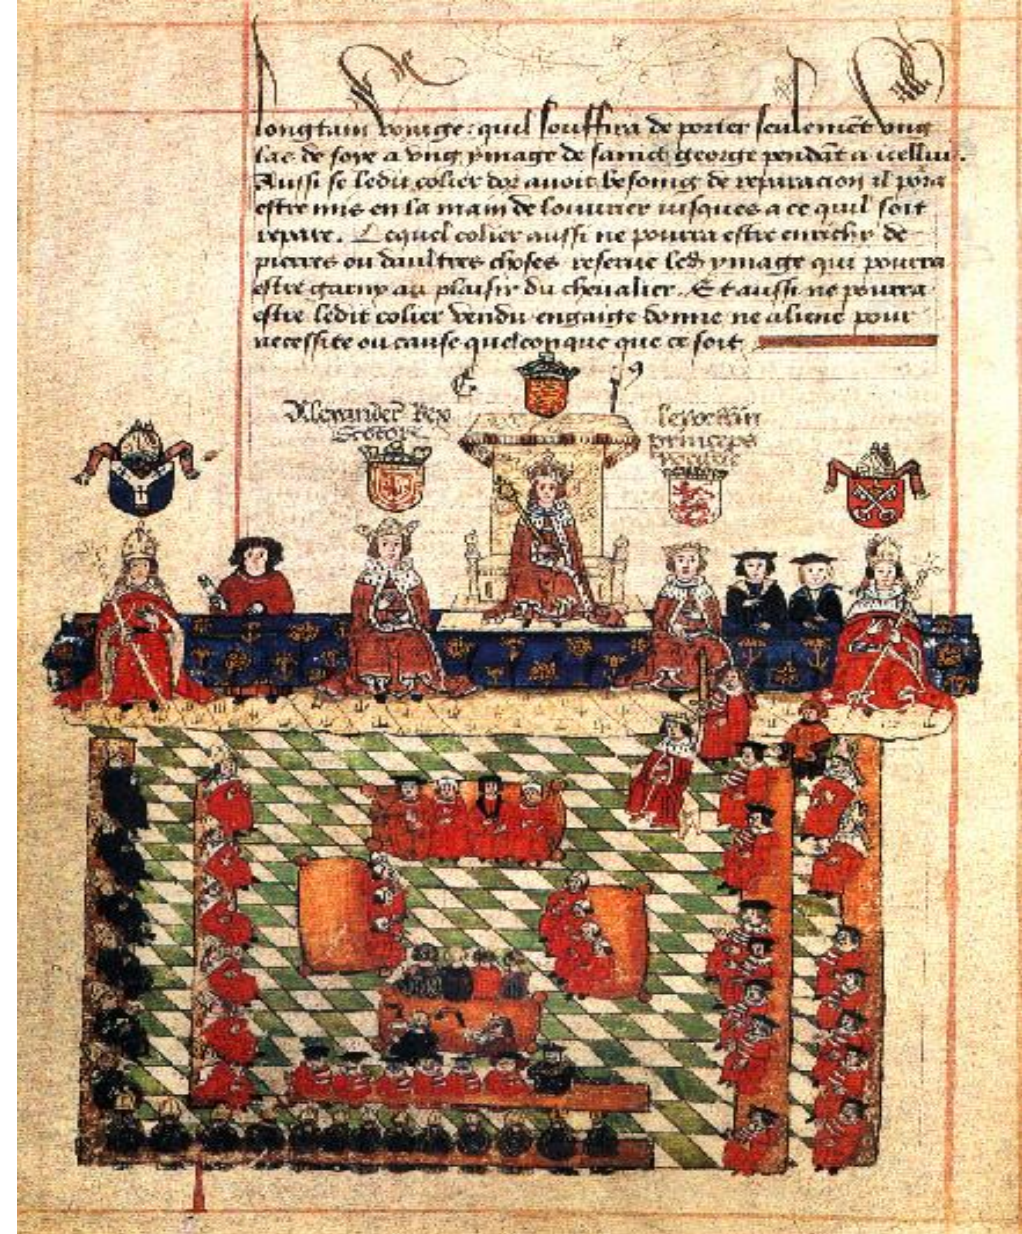 longtain voiaige : quil souffira de porter seulemēt vng
las de soye a vng ymage de sainct george pendāt a icelluy.
Aussi se ledit colier dor auoit besoing de reparacion il pora
estre mis en la main de louurier iusques a ce quil soit
repare. Lequel colier aussi ne pourra estre enrichy de
pierres ou daultres choses reserue led ymage qui pourra
estre garny au plaisir du cheualier. Et aussi ne pourra
estre ledit colier vendu engaige donne ne aliene pour
necessite ou cause quelconque que ce soit
Alexander Rex
Scotorū
lewellin
princeps